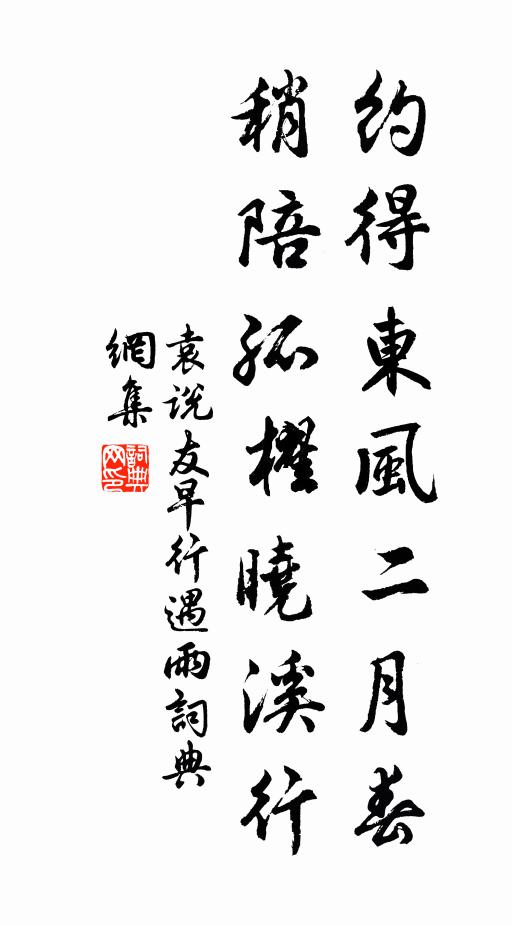 約得東風二月春
稍陪孤櫂曉溪行
袁說友早行遇雨詞典
網集
詞典网印